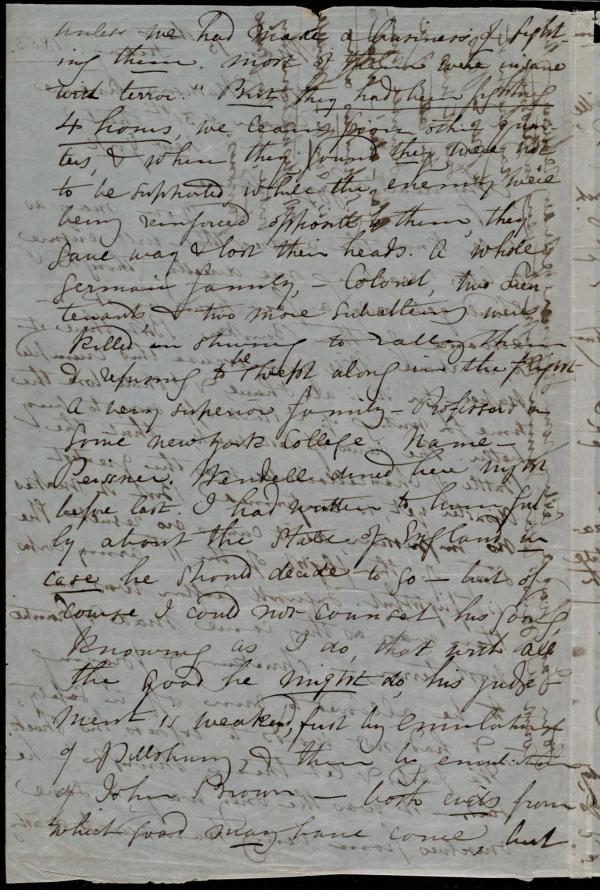 unless we had made a business of fight-
ing them. most of them were insane
with terror." But they had been fighting
4 hours, we learn from other quar-
ters, & when they found they were not
to be supported, while the enemy were
being reinforced opposite to them, they
gave way & lost their heads. A whole
German family, - Colonel, two Lieu-
tenants & two more subalterns were
killed in striving to rally them
& refusing to be swept along in the flight.
A very superior family - Professors in
some new york College. Name -
Peissner. Wendell dined here night
before last. I had written to him ful-
ly about the state of England in
case he should decide to go - but of
course I could not counsel his going,
knowing as I do, that with all
the good he might do, his judg-
ment is weakened, first by emulation
of Pillsbury, & then by emulation
of John Brown - both evils from
which good may have come, but